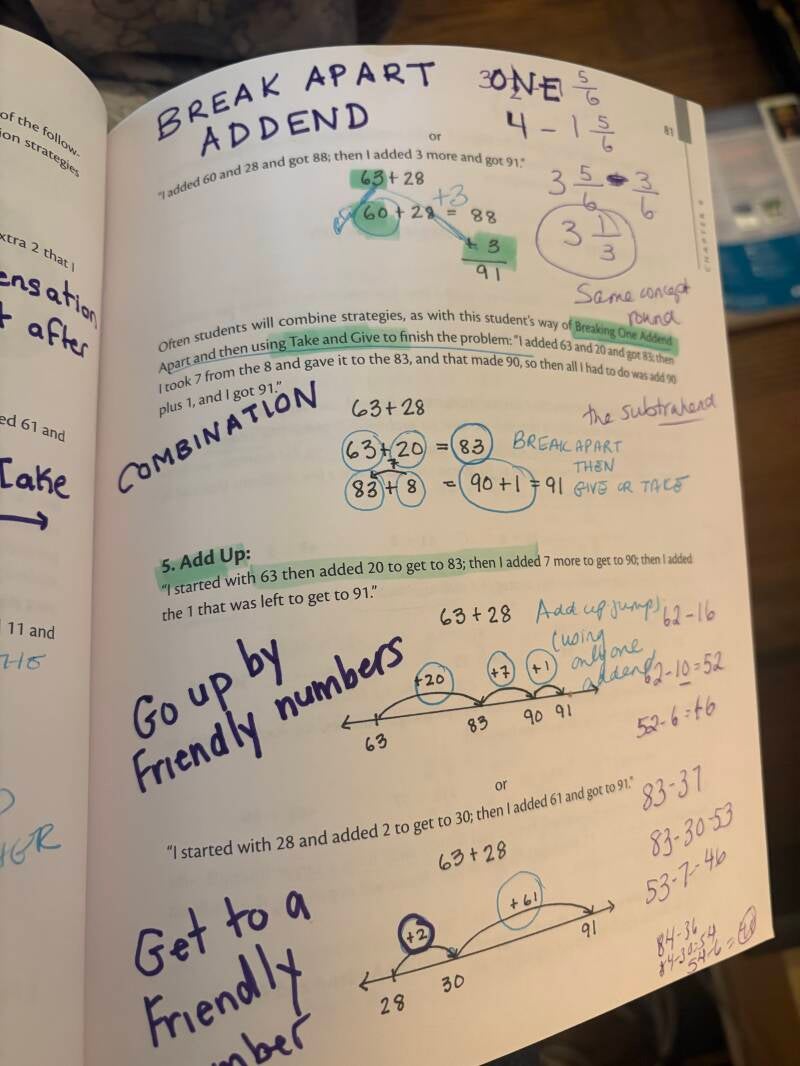 of the follow-
ion strategies
xtra 2 that I
ensation
after
ed 61 and
Take
11 and
BREAK APART ONE
ADDEND
5/6
4 - 1 5/6
81
or
"I added 60 and 28 and got 88; then I added 3 more and got 91."
63 + 28
+3
60 + 28 = 88
+ 3
91
3 5/6 - 3/6
3 1/3
CHAPTER
Same concept
round
the subtrahend
Often students will combine strategies, as with this student's way of Breaking One Addend
Apart and then using Take and Give to finish the problem: "I added 63 and 20 and got 83; then
I took 7 from the 8 and gave it to the 83, and that made 90, so then all I had to do was add 90
plus 1, and I got 91."
COMBINATION
63 + 28
63 + 20 = 83
7
83 + 8 = 90 + 1 = 91
BREAK APART
THEN
GIVE OR TAKE
5. Add Up:
"I started with 63 then added 20 to get to 83; then I added 7 more to get to 90; then I added
the 1 that was left to get to 91."
Go up by
friendly numbers
63 + 28
Add up jumps
(using
only one
addend)
+20 +7 +1
63 83 90 91
62-16
62-10=52
52-6=46
or
"I started with 28 and added 2 to get to 30; then I added 61 and got to 91."
63 + 28
Get to a
Friendly
mber
+2 +61
28 30 91
83-37
83-30-53
53-7-46
84-36
84-30=54
54-6=